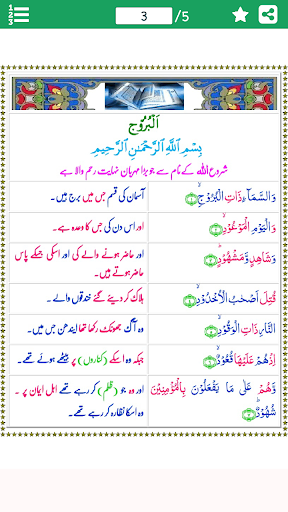 3 /5
اَلْبُرُوْج
بِسْمِ اللّٰهِ الرَّحْمٰنِ الرَّحِيْمِ
شروع اللہ کے نام سے جو بڑا مہربان نہایت رحم والا ہے
وَالسَّمَآءِ ذَاتِ الْبُرُوْجِۙ
آسمان کی قسم جس میں برج ہیں۔
وَالْيَوْمِ الْمَوْعُوْدِۙ
اور اس دن کی جس کا وعدہ ہے۔
وَشَاهِدٍ وَّمَشْهُوْدٍؕ
اور حاضر ہونے والے کی اور اسکی جسکے پاس
حاضر ہوتے ہیں۔
قُتِلَ اَصْحٰبُ الْاُخْدُوْدِۙ
ہلاک کر دیئے گئے خندقوں والے۔
النَّارِ ذَاتِ الْوَقُوْدِۙ
وہ آگ بھڑکتی جس میں۔
اِذْ هُمْ عَلَيْهَا قُعُوْدٌۙ
جبکہ وہ اسکے (کناروں) پر بیٹھے ہوئے تھے۔
وَّهُمْ عَلٰى مَا يَفْعَلُوْنَ بِالْمُؤْمِنِيْنَ
شُهُوْدٌؕ
اور وہ جو (ظلم) کر رہے تھے اہل ایمان پر
وہ اسکا نظارہ کر رہے تھے۔